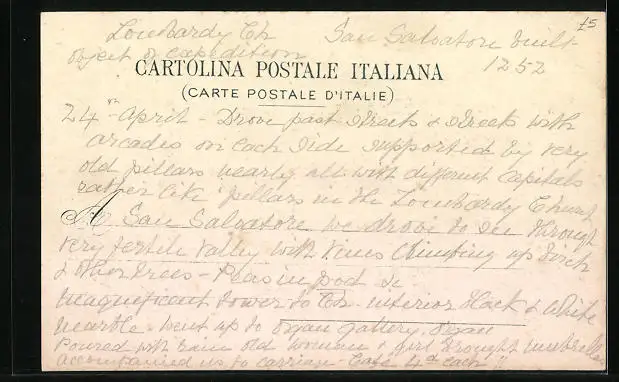 £5
Lombardy Ch San Salvatore built
object of expedition 1252
CARTOLINA POSTALE ITALIANA
(CARTE POSTALE D'ITALIE)
24th April - Drove past streets & streets with
arcades on each side supported by very
old pillars nearly all with different capitals
rather like pillars in the Lombardy Church
San Salvatore we drove to see through
very fertile valley with vines climbing up birch
& other trees - Peas in pod &c
magnificent tower to Ch - interior black & white
marble - went up to organ gallery. organ
Poured with rain old woman & girl brought umbrellas
accompanied us to carriage - 4d each !!